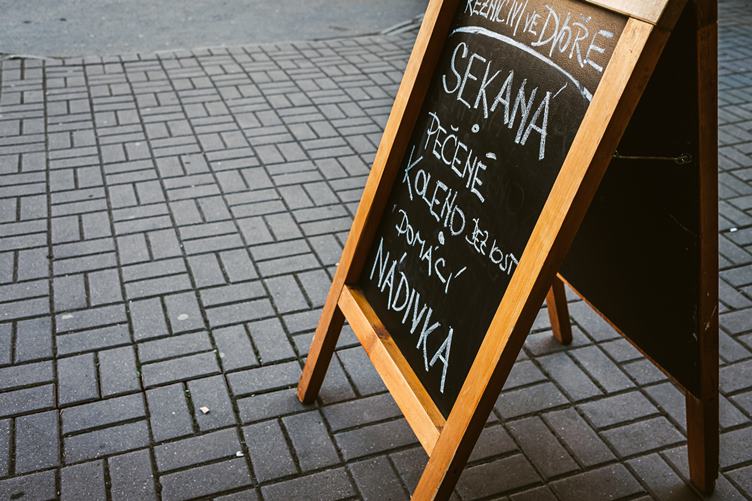 ŘEZNICTVÍ VE DVOŘE
SEKANÁ
PEČENÉ
KOLENO BEZ KOSTI
DOMÁCÍ
NÁDIVKA